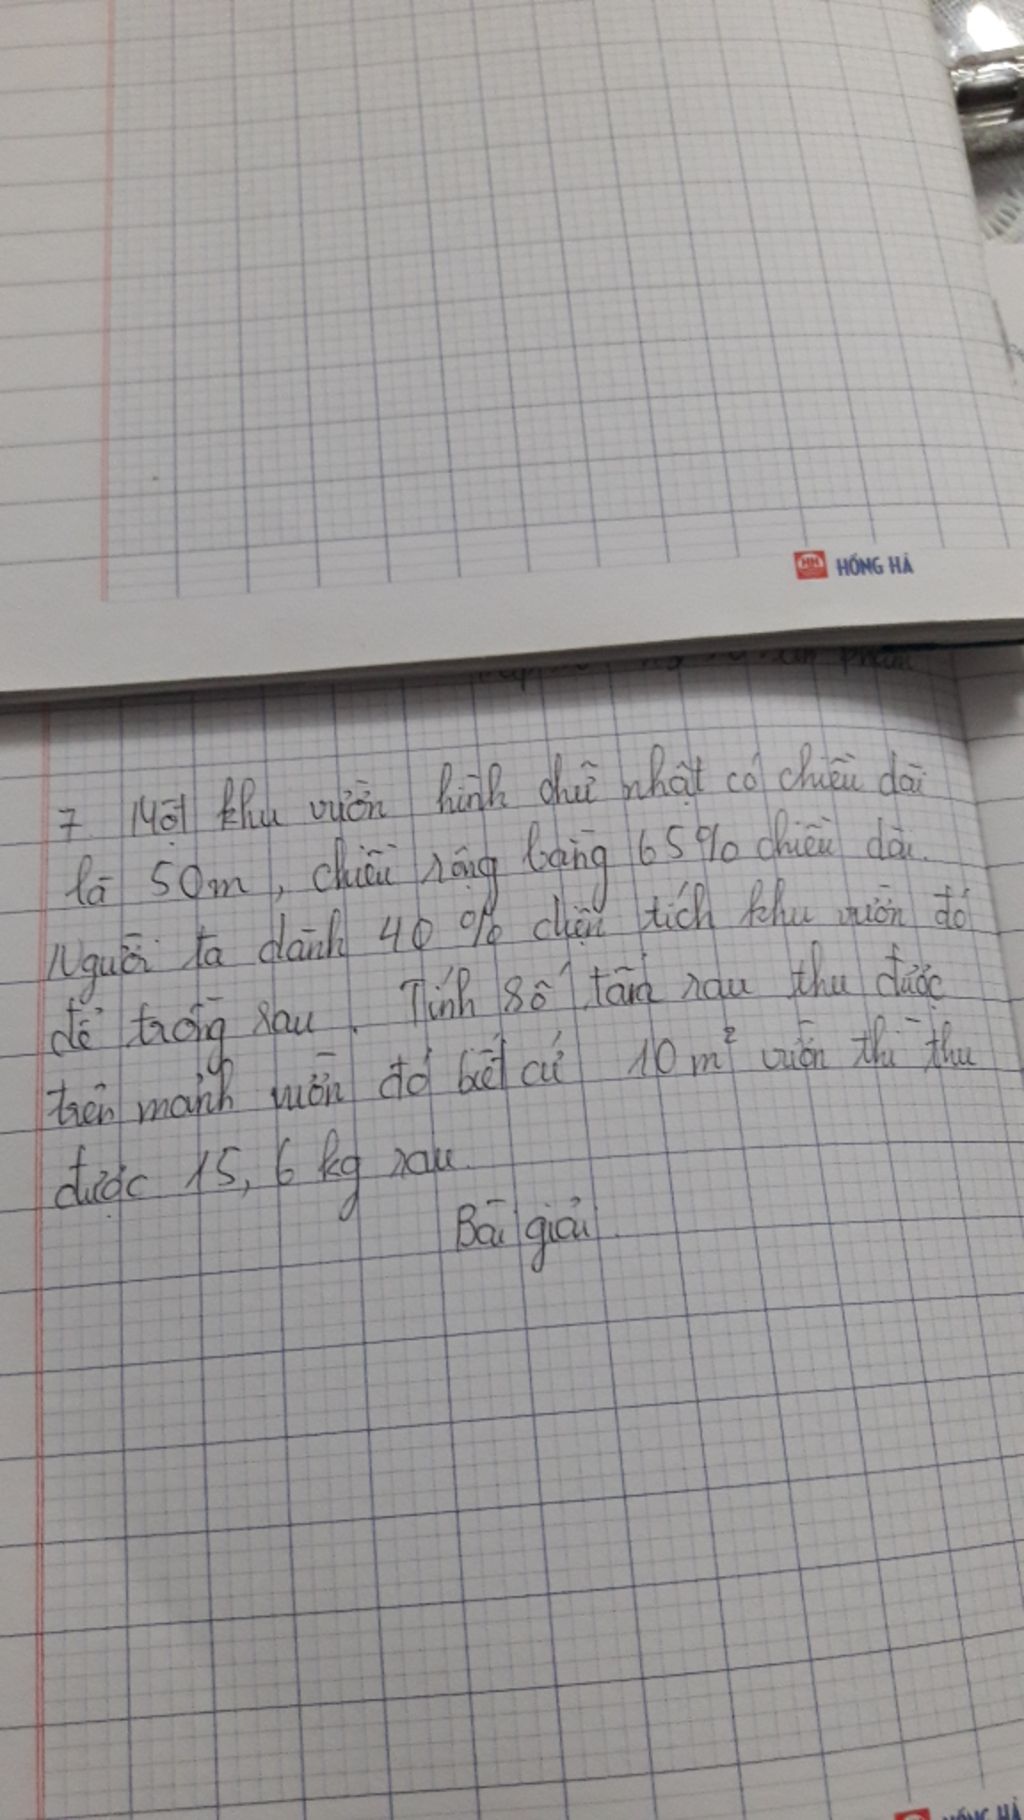 HH HỒNG HÀ
7. Một khu vườn hình chữ nhật có chiều dài
là 50m, chiều rộng bằng 65% chiều dài.
Người ta dành 40% diện tích khu vườn đó
để trồng rau. Tính số tấn rau thu được
trên mảnh vườn đó biết cứ 10 m² vườn thì thu
được 15,6 kg rau.
Bài giải
HỒNG HÀ